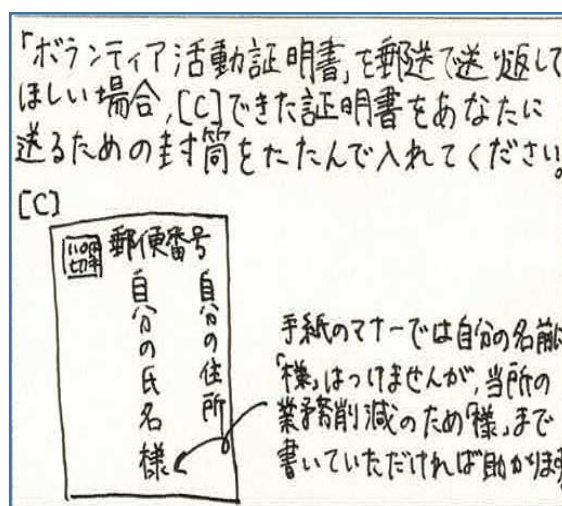 「ボランティア活動証明書」を郵送で送り返して
ほしい場合、[C]できた証明書をあなたに
送るための封筒をたたんで入れてください。
[C]
110円
切手
郵便番号
自分の住所
自分の氏名 様
手紙のマナーでは自分の名前に
「様」はつけませんが、当所の
業務削減のため「様」まで
書いていただければ助かります